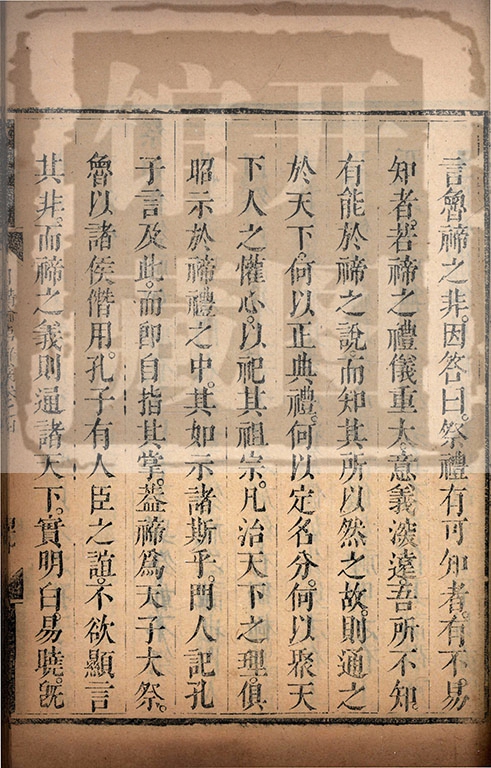 言魯禘之非。因答曰。祭禮有可知者。有不易
知者。若禘之禮儀重大。意義淡遠。吾所不知
有能於禘之說。而知其所以然之故。則通之
於天下。何以正典禮。何以定名分。何以聚天
下人之懽心。以祀其祖宗。凡治天下之理。俱
昭示於禘禮之中。其如示諸斯乎。門人記孔
子言及此。而即自指其掌。葢禘爲天子大祭。
魯以諸侯僭用。孔子有人臣之誼。不欲顯言
其非。而禘之義則通諸天下。實明白。易曉。旣